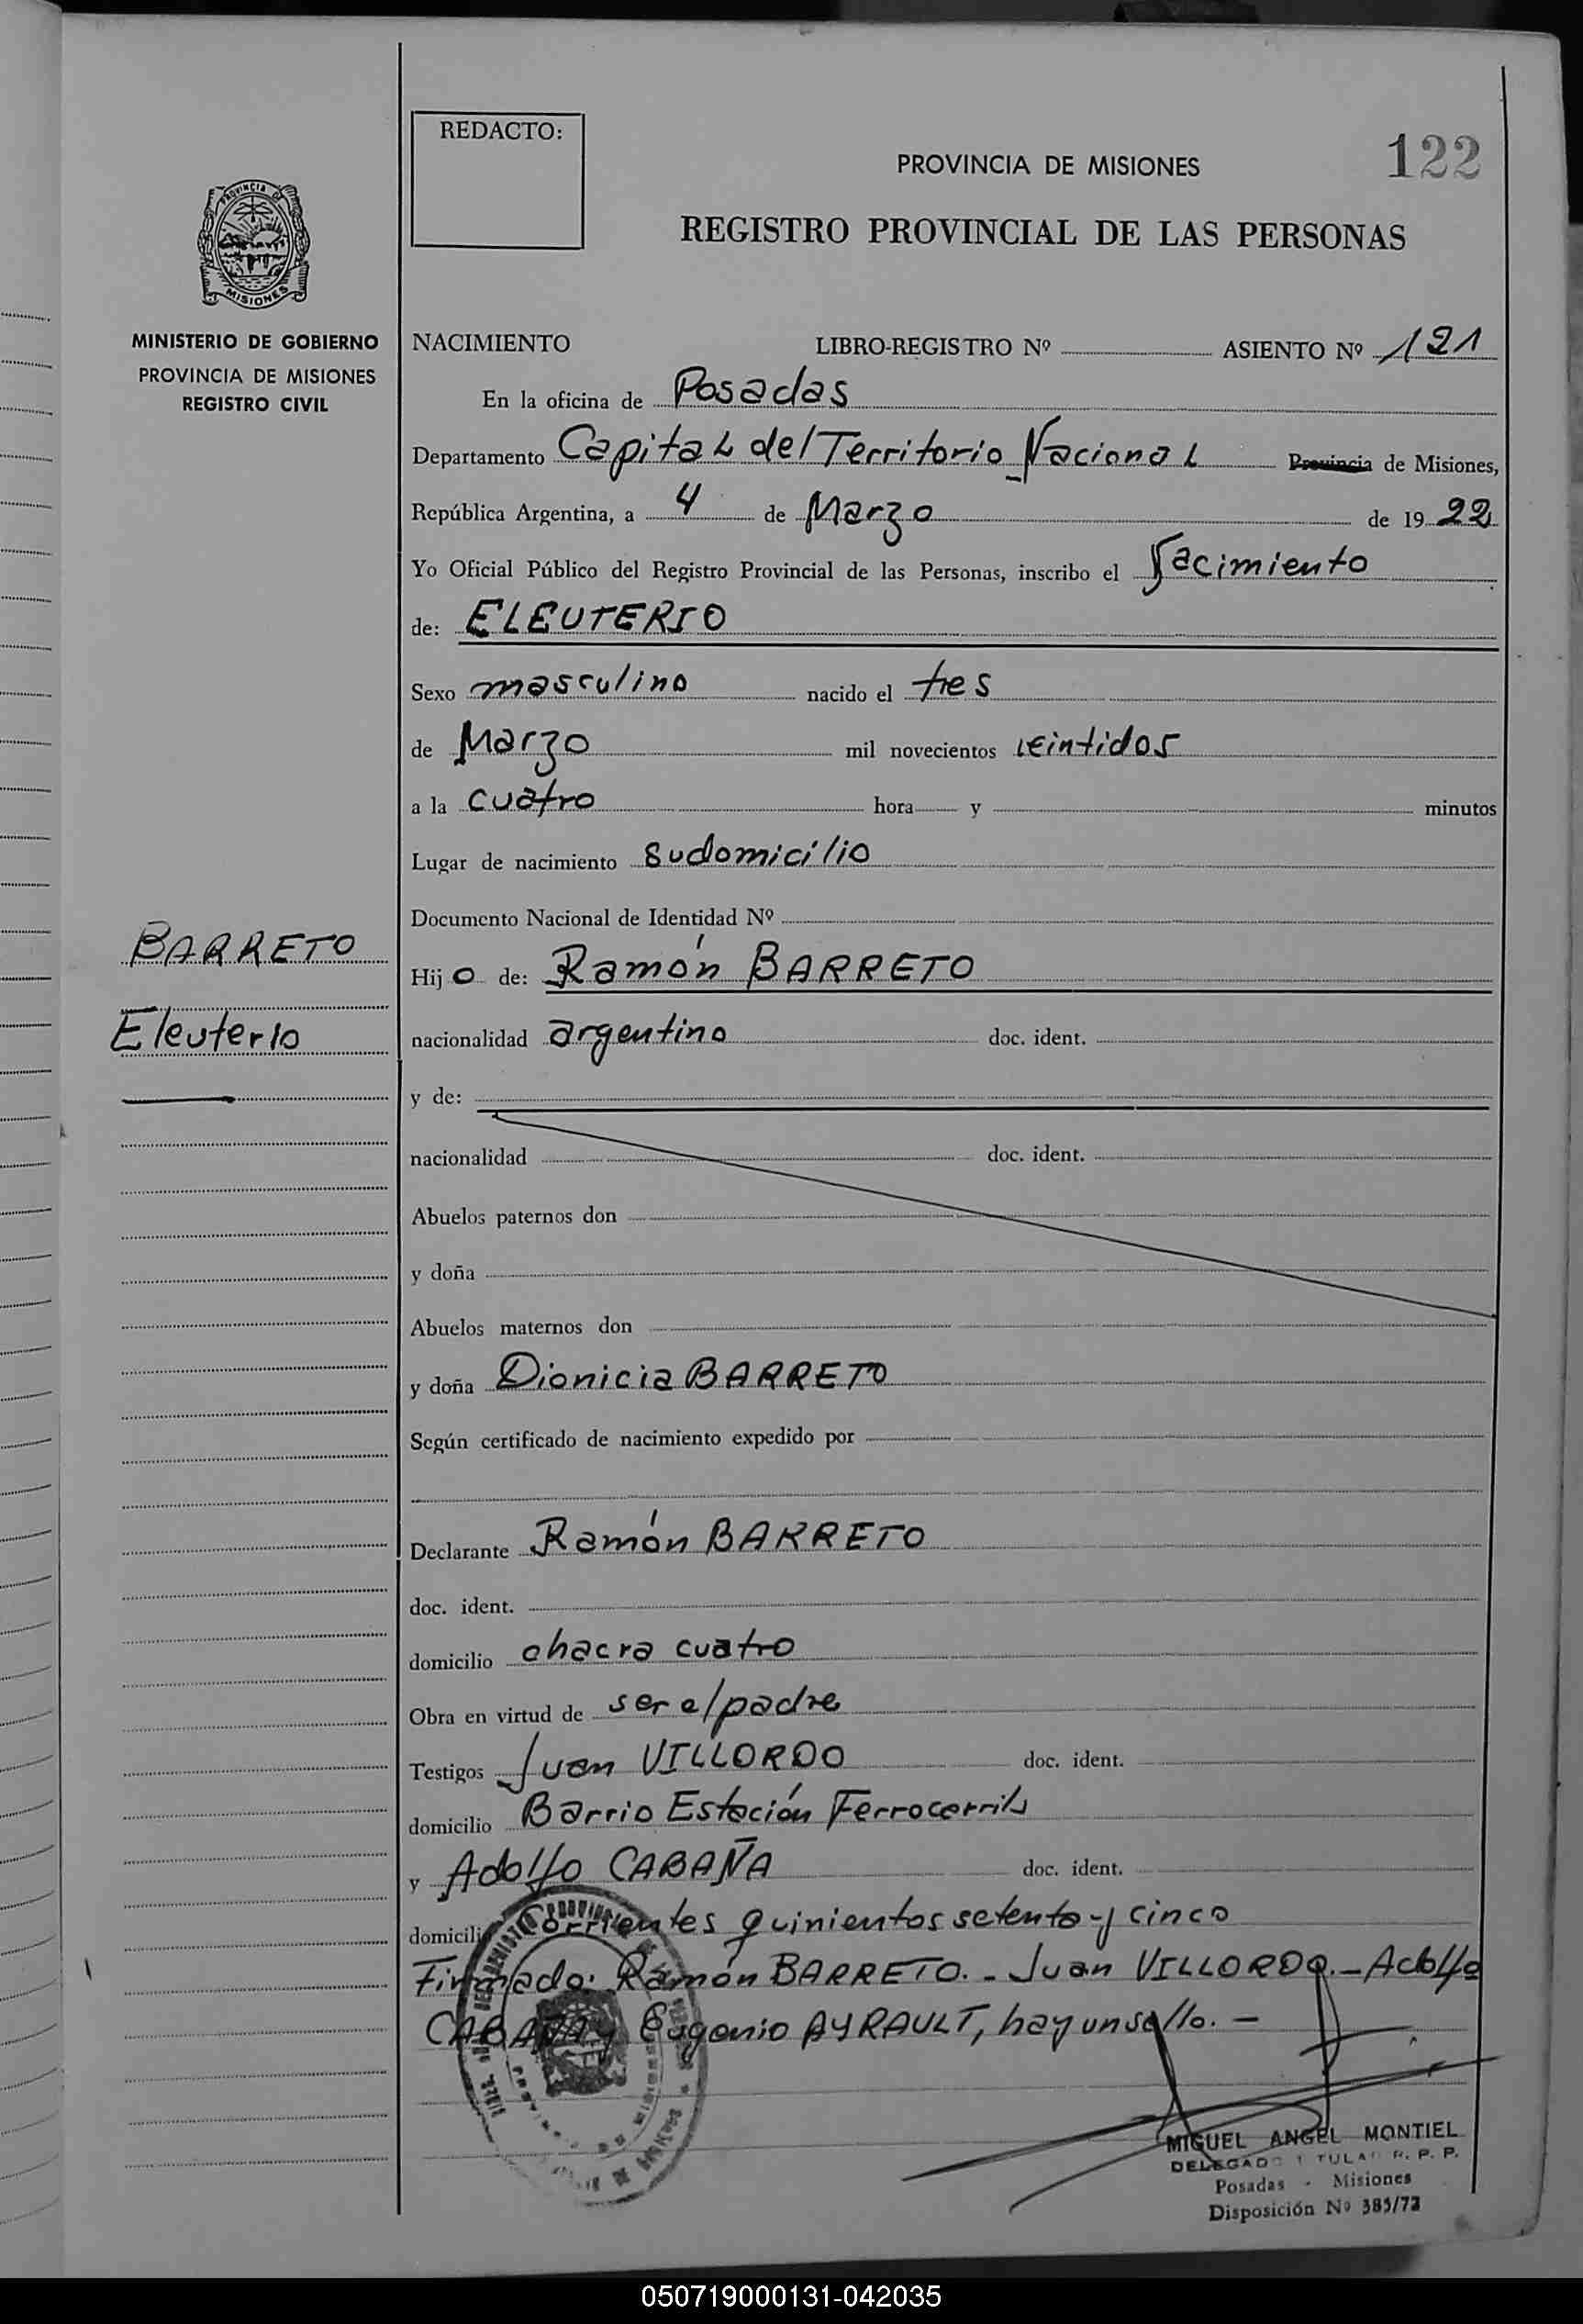 REDACTO:
122
PROVINCIA DE MISIONES
REGISTRO PROVINCIAL DE LAS PERSONAS
PROVINCIA DE
MISIONES
MINISTERIO DE GOBIERNO
PROVINCIA DE MISIONES
REGISTRO CIVIL
BARRETO
Eleuterio
NACIMIENTO LIBRO-REGISTRO Nº ASIENTO Nº 121
En la oficina de Posadas
Departamento Capital del Territorio Nacional Provincia de Misiones,
República Argentina, a 4 de Marzo de 1922
Yo Oficial Público del Registro Provincial de las Personas, inscribo el Nacimiento
de: ELEUTERIO
Sexo masculino nacido el tres
de Marzo mil novecientos veintidos
a la cuatro hora y minutos
Lugar de nacimiento Su domicilio
Documento Nacional de Identidad Nº
Hijo de: Ramón BARRETO
nacionalidad argentino doc. ident.
y de:
nacionalidad doc. ident.
Abuelos paternos don
y doña
Abuelos maternos don
y doña Dionicia BARRETO
Según certificado de nacimiento expedido por
Declarante Ramón BARRETO
doc. ident.
domicilio chacra cuatro
Obra en virtud de ser el padre
Testigos Juan VILLORDO doc. ident.
domicilio Barrio Estación Ferrocarril
y Adolfo CABAÑA doc. ident.
domicilio Corrientes quinientos setenta y cinco
Firmado: Ramón BARRETO.- Juan VILLORDO.- Adolfo
CABAÑA y Eugenio AYRAULT, hay un sello.-
MIGUEL ANGEL MONTIEL
DELEGADO TITULAR R. P. P.
Posadas - Misiones
Disposición Nº 385/73
050719000131-042035